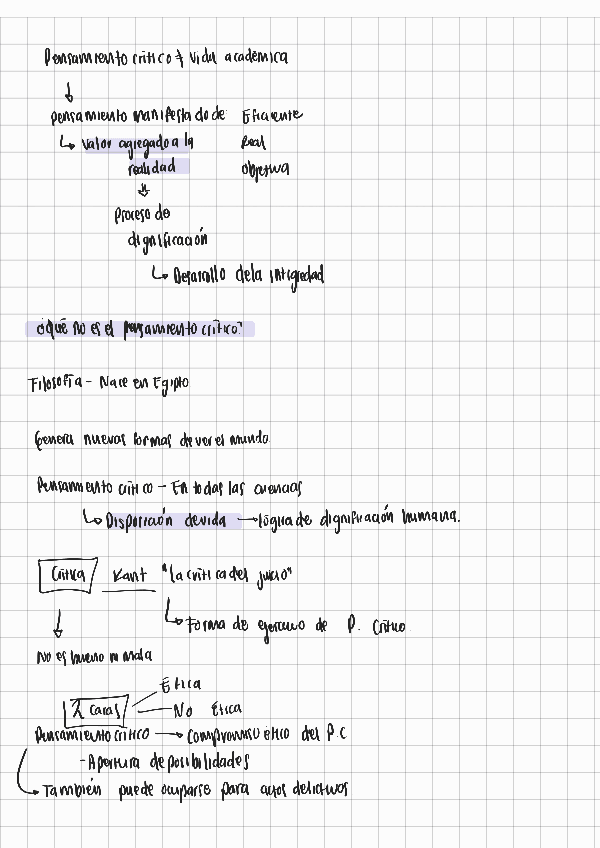 Pensamiento crítico y vida académica
↓
Pensamiento manifestado de: Eficiente
↳ Valor agregado a la Real
realidad objetiva
⇓
Proceso de
dignificación
↳ Desarollo de la integredad
¿Qué no es el pensamiento crítico?
Filosofía - Nace en Egipto
Genera nuevas formas de ver el mundo
Pensamiento crítico - En todas las ciencias
↳ Disposición de vida → lógica de dignificación humana.
Crítica Kant "La crítica del juicio"
↳ Forma de ejercicio de P. Crítico
↓
No es bueno ni mala
Etica
2 caras
No Ética
Pensamiento crítico → Compromiso etico del P.C
- Apertura de posibilidades
→ También puede ocuparse para actos delictivos